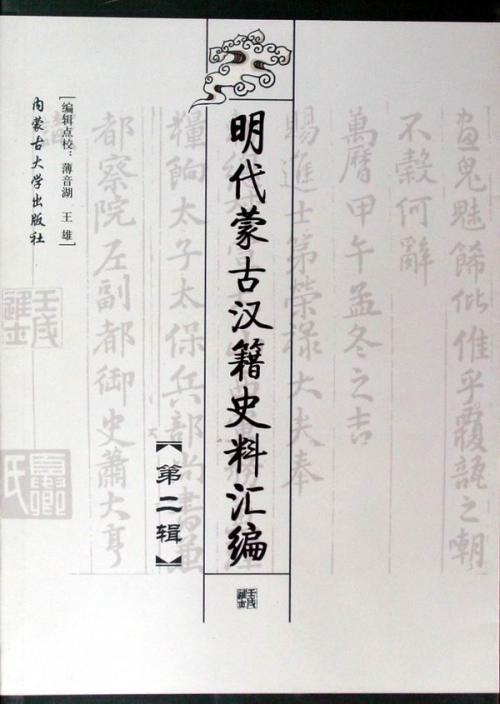 畫鬼魅餙仳倠乎覆瓿之嘲
不穀何辭
萬曆甲午孟冬之吉
賜進士第榮祿大夫奉
明代蒙古汉籍史料汇编
【第二辑】
糧餉太子太保兵部尚書兼
都察院左副都御史蕭大亨
[编辑点校：薄音湖 王雄]
内蒙古大学出版社